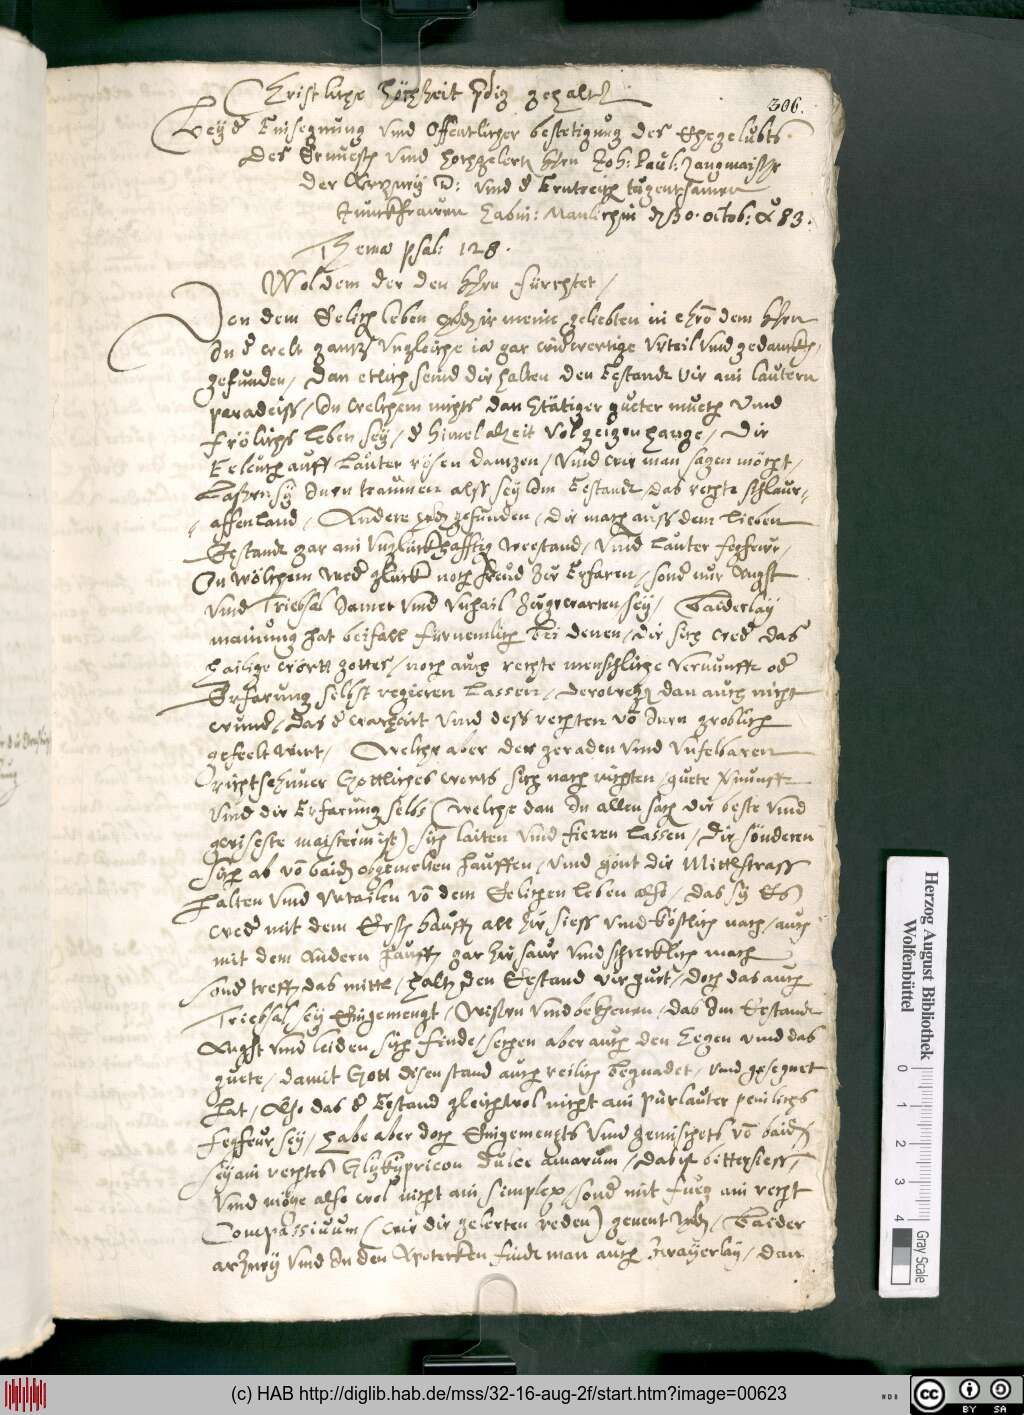 Christliche Hochzeit pdig gehalten
306.
Bey der Einsegnung und Offentlicher bestetigung des Ehegelübts
des Ernuesten und hochgelerten herrn Joh: Paul:
der Artzney D: und der Erntreichen tugentsamen
Junckfrawen Sabin: Manlichin den 30. octob: &c 83.
Thema psal: 128.
Wol dem der den herrn fürchtet /
Von dem Eelichen leben werden ir meine geliebten in ehrn dem herrn
In der welt gantz ungleiche ia gar widwertige Urteil und gedancken
gefunden / dan etlich seind die halten den Eestandt vir ain lautern
paradeiss / In welchem nichts dan stätiger gueter muets und
frölichs leben sey / der himel alzeit vol geigen hange / die
Eeleuth auff Lauter rosen dantzen / und wie man sagen möcht /
Lassen sy Inen traumen alss sey Im Eestandt das rechte schlaur=
affenland / Andere werden gefunden / die mach auss dem lieben
Eestandt gar ain unglückhafftig weestand / und lauter fegfeur /
In wölchem weder glück noch freud zu Erfaren / sonder nur Angst
und Triebsal Jamer und unhail zugewarten sey / Baiderlay
mainung hat beifall fürnemlich bei denen / die sich weder das
hailige wortt gottes / noch auch rechte menschliche vernunfft oder
Erfarung selbst regieren lassen / derowegen dan auch nicht
wunder / das der warhait und dess rechten von Inen groblich
gefeelt wirt / Welche aber der geraden und unfelbaren
richtschnuer Gottliches worts sich nach richten / guete vernunfft
und die Erfarung selbs (welche dan In allen sach die beste und
gwiseste maisterin ist) sich laiten und fieren lassen / die sönderen
sich ab von baiden obgemelten hauffen / und gönt die Mittlstrass
halten und urtailen von dem Eelichen leben also / das sy Es
weder mit dem Ersten hauffen all zu siess und köstlich nach / auch
mit dem Andern hauffen gar zu saur und schrecklich mach
sonder treffen das mittl / halten den Eestand vir guet / doch das auch
Triebsal sey Eingemengt / Wissen und bekhenen / das Im Eestandt
Angst und leiden sich finde / sechen aber auch den Segen und das
guete / damit Gott disen stand auch reilich begnadet / und gesegnet
hat / Also das der Eestand gleichwol nicht ain pur lauter peinlichs
fegfeur sey / habe aber doch Eingemengts und gemischets von baiden
sey ain rechtes Glykypricon dulce amarum / das ist bittersiess /
und möge also wol nicht ain simplex / sonder mit fueg ain recht
Compassiuum (wie die gelerten reden) genent werden / Baider
artzney und In den Apotecken findt man auch zwayerlay / dan
Herzog August Bibliothek
Wolfenbüttel
0 1 2 3 4
Gray Scale
(c) HAB http://diglib.hab.de/mss/32-16-aug-2f/start.htm?image=00623
WDB
cc BY SA